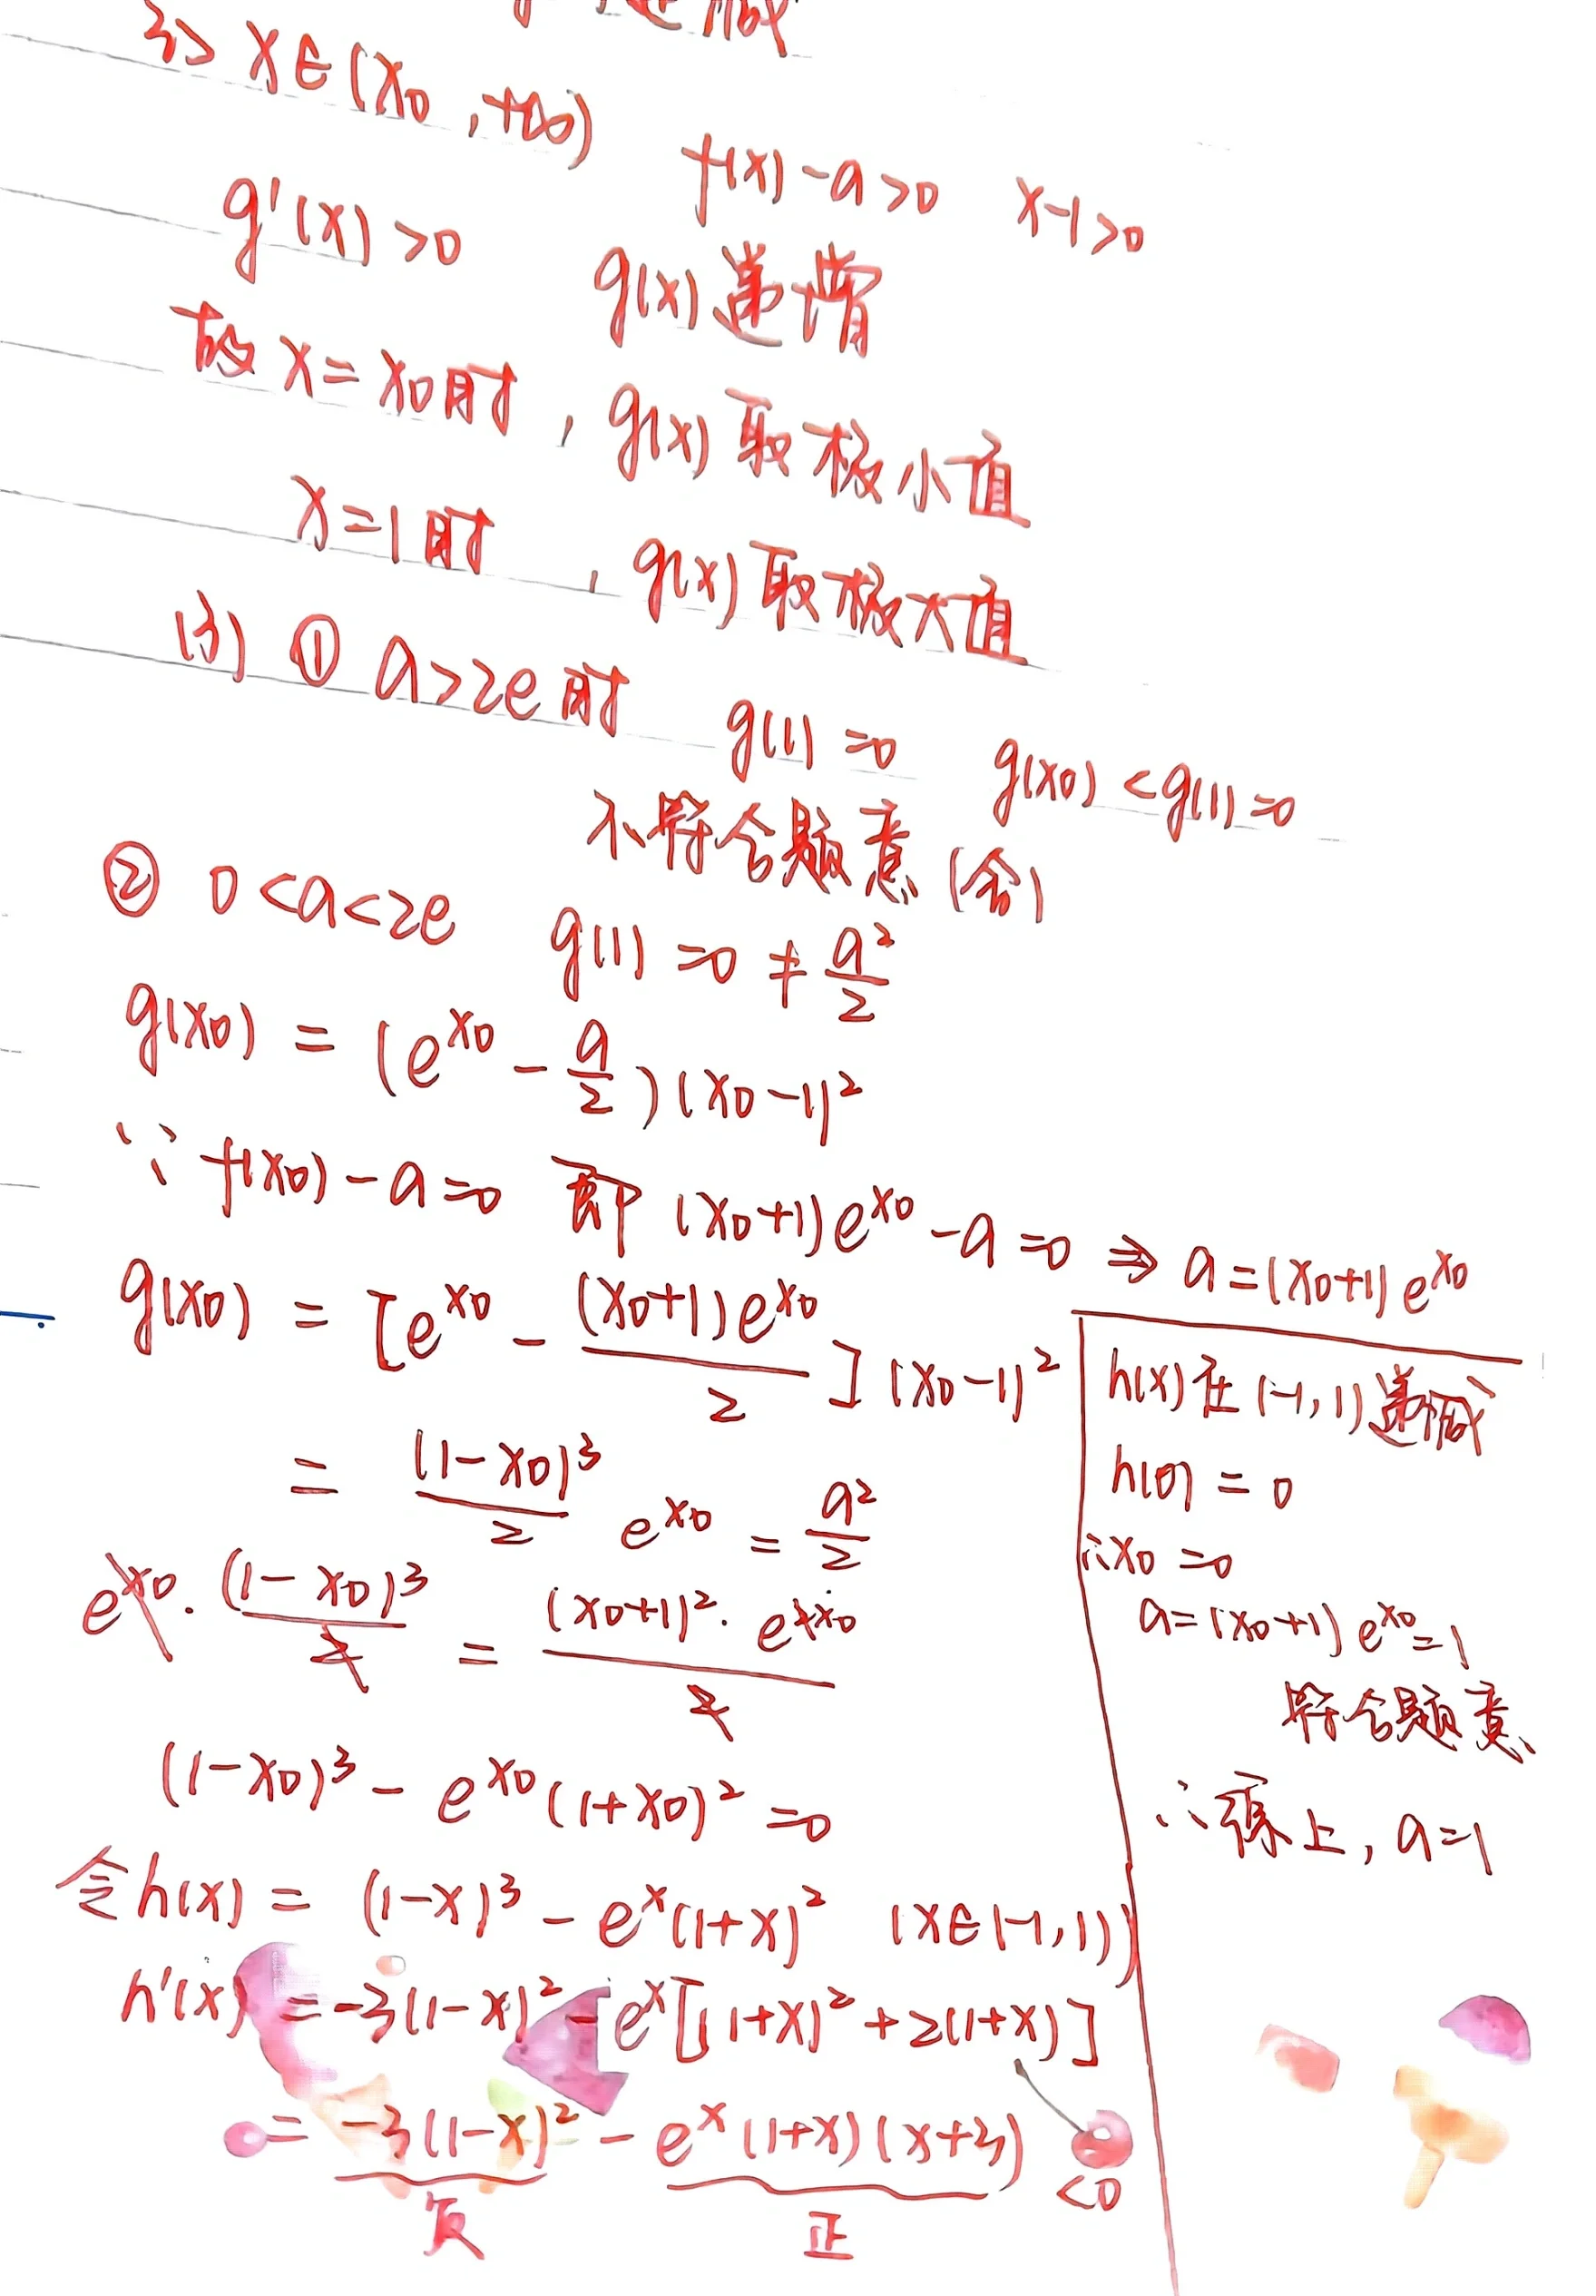 递减
3> x∈(x₀,+∞) f(x)-a>0 x-1>0
g'(x)>0 g(x)递增
故x=x₀时，g(x)取极小值
x=1时，g(x)取极大值
(3) ① a>2e时 g(1)=0 g(x₀)<g(1)=0
不符合题意(舍)
② 0<a<2e g(1)=0≠a²/2
g(x₀)=(e^x₀-a/2)(x₀-1)²
∵f(x₀)-a=0 即(x₀+1)e^x₀-a=0 ⇒ a=(x₀+1)e^x₀
g(x₀)=[e^x₀-(x₀+1)e^x₀/2](x₀-1)²
=(1-x₀)³/2 e^x₀=a²/2
e^x₀·(1-x₀)³/2=(x₀+1)²·e^2x₀/2
(1-x₀)³-e^x₀(1+x₀)²=0
令h(x)=(1-x)³-e^x(1+x)² (x∈(-1,1))
h'(x)=-3(1-x)²-e^x[(1+x)²+2(1+x)]
=-3(1-x)²-e^x(1+x)(x+3) <0
负 正
h(x)在(-1,1)递减
h(0)=0
∴x₀=0
a=(x₀+1)e^x₀=1
符合题意
∴综上，a=1